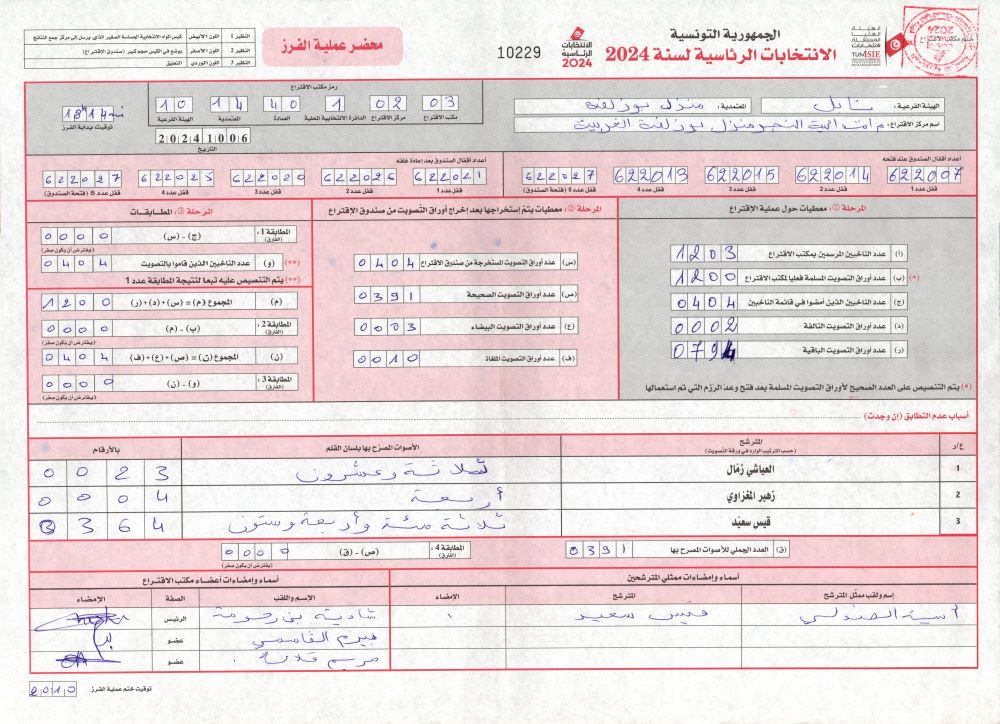 الجمهورية التونسية
الانتخابات الرئاسية لسنة 2024
10229
محضر عملية الفرز
النظير 1 اللون الأبيض
النظير 2 اللون الأصفر يوضع في الكيس حجم كبير (صندوق الاقتراع)
النظير 3 اللون الوردي التعليق
الهيئة الفرعية: نابل المعتمدية: منزل بوزلفة
اسم مركز الاقتراع:
رمز مكتب الاقتراع
03 02 1 40 14 10
مكتب الاقتراع مركز الاقتراع الدائرة الانتخابية المحلية العمادة المعتمدية الهيئة الفرعية
20241006
التاريخ
توقيت بداية الفرز
أعداد أقفال الصندوق عند فتحه
622007 622014 622015 622013 622027
قفل عدد 1 قفل عدد 2 قفل عدد 3 قفل عدد 4 قفل عدد 5 (فتحة الصندوق)
أعداد أقفال الصندوق بعد إعادة غلقه
622021 622026 622020 622025 622027
قفل عدد 1 قفل عدد 2 قفل عدد 3 قفل عدد 4 قفل عدد 5 (فتحة الصندوق)
المرحلة ①: معطيات حول عملية الاقتراع
(أ) عدد الناخبين المرسمين بمكتب الاقتراع 1203
(*) (ب) عدد أوراق التصويت المسلمة فعليا لمكتب الاقتراع 1200
(ج) عدد الناخبين الذين أمضوا في قائمة الناخبين 0404
(د) عدد أوراق التصويت التالفة 0002
(ر) عدد أوراق التصويت الباقية 0794
(*) يتم التنصيص على العدد الصحيح لأوراق التصويت المسلمة بعد فتح وعد الرزم التي تم استعمالها
المرحلة ②: معطيات يتم إستخراجها بعد إخراج أوراق التصويت من صندوق الاقتراع
(س) عدد أوراق التصويت المستخرجة من صندوق الاقتراع 0404
(ص) عدد أوراق التصويت الصحيحة 0391
(ع) عدد أوراق التصويت البيضاء 0003
(ف) عدد أوراق التصويت الملغاة 0010
المرحلة ③: المطابقات
المطابقة 1: (الفارق) (ج) - (س) 0000
(يفترض أن يكون صفر)
(**) (و) عدد الناخبين الذين قاموا بالتصويت 0404
(**) يتم التنصيص عليه تبعا لنتيجة المطابقة عدد 1
(م) المجموع (م) = (س)+(د)+(ر) 1200
المطابقة 2: (الفارق) (ب) - (م) 0000
(يفترض أن يكون صفر)
(ن) المجموع (ن) = (ص)+(ع)+(ف) 0404
المطابقة 3: (الفارق) (و) - (ن) 0000
(يفترض أن يكون صفر)
أسباب عدم التطابق (إن وجدت)
ع/ر المترشح الأصوات المصرّح بها بلسان القلم بالأرقام
(حسب الترتيب الوارد في ورقة التصويت)
1 العياشي زمّال ثلاثة وعشرون 0023
2 زهير المغزاوي أربعة 0004
3 قيس سعيّد ثلاثة مئة وأربعة وستون 0364
(ق) العدد الجملي للأصوات المصرح بها 0391
المطابقة 4: (الفارق) (ص) - (ق) 0000
(يفترض أن يكون صفر)
أسماء وإمضاءات ممثلي المترشحين
إسم ولقب ممثل المترشح المترشح الإمضاء
قيس سعيد
أسماء وإمضاءات أعضاء مكتب الاقتراع
الإسم واللقب الصفة الإمضاء
الرئيس
القاسمي عضو
مريم عضو
توقيت ختم عملية الفرز 20:10